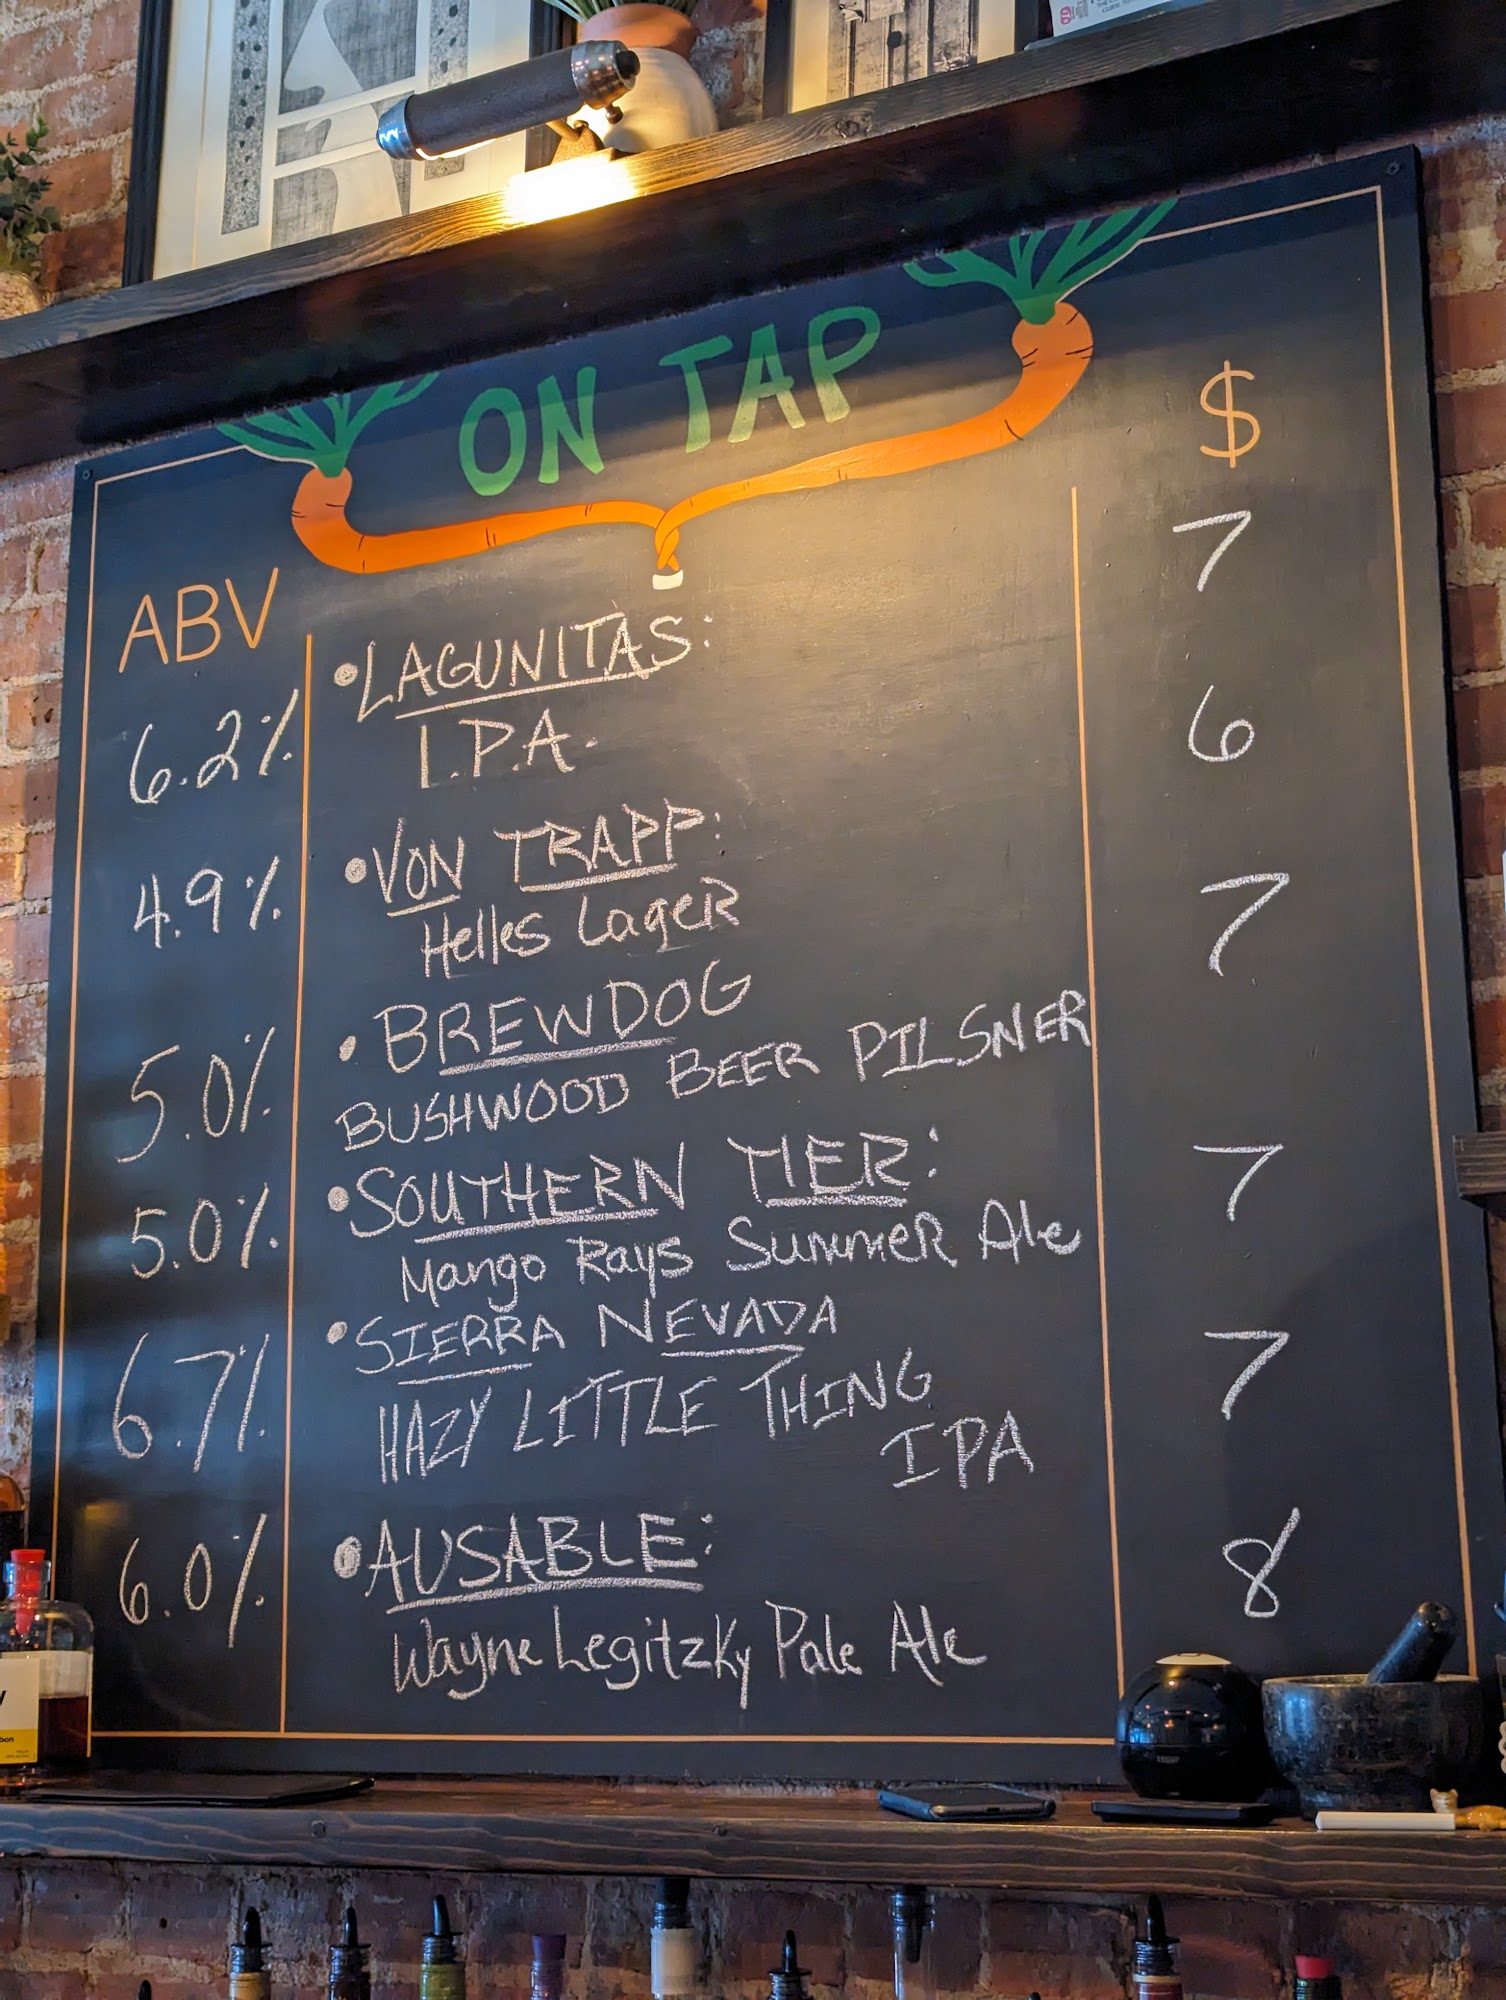 ON TAP
$
ABV
7
LAGUNITAS:
6.2%
I.P.A.
6
VON TRAPP:
4.9%
Helles Lager
7
BREWDOG
5.0%
BUSHWOOD BEER PILSNER
SOUTHERN TIER:
7
5.0%
Mango Rays Summer Ale
SIERRA NEVADA
7
6.7%
HAZY LITTLE THING
IPA
AUSABLE:
8
6.0%
Wayne Legitzky Pale Ale